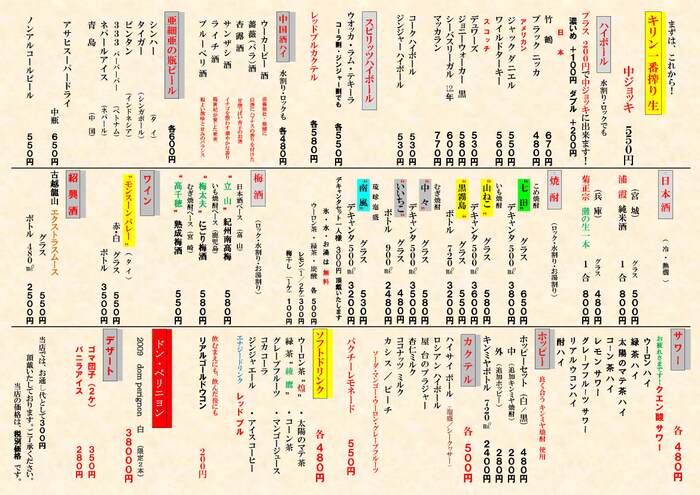 まずは、これから!
キリン一番搾り 生
中ジョッキ 550円
ハイボール 水割り・ロックでも
プラス 200円で中ジョッキに出来ます!
濃いめ +100円 ダブル +200円
日本
竹鶴 670円
ブラック ニッカ 480円
アメリカン
ジャック ダニエル 500円
ワイルドターキー 500円
スコッチ
デュワーズ 500円
ジョニーウォーカー 黒 570円
シーバスリーガル 12年 600円
マッカラン 770円
コークハイボール 530円
ジンジャーハイボール 530円
スピリッツハイボール
ウオッカ・ラム・テキーラ 各550円
コーラ割・ジンジャー割でも 各580円
レッドブルカクテル
中国酒ハイ 水割り・ロックも 各480円
ウーカーピー酒
薔薇(バラ)酒
杏露酒
サンザシ酒
ライチ酒
ブルーベリ酒
亜細亜の瓶ビール 各600円
シンハー (タイ)
タイガー (シンガポール)
ビンタン (インドネシア)
333 バーバーバー (ベトナム)
ネパールアイス (ネパール)
青島 (中国)
アサヒスーパードライ 中瓶 650円
ノンアルコールビール 550円
日本酒 (冷・熱燗)
(宮城)
浦霞 純米酒 グラス 500円 1合 800円
(兵庫)
菊正宗 灘の生一本 グラス 480円 1合 800円
焼酎 (ロック・水割り・お湯割り)
こめ焼酎
“七田” グラス 650円 デキャンタ 500㎖ 3800円
いも焼酎
“山ねこ” グラス 580円
“黒霧島” グラス 480円 ボトル 720㎖
むぎ焼酎
“中々” グラス 580円 デキャンタ 500㎖
“いいちこ” グラス 480円 デキャンタ 500㎖ 2400円
琉球泡盛
“南風” グラス 530円 デキャンタ 500㎖
デキャンタセット一人様 300円 頂戴いたします
氷・水・お湯は無料
ウーロン茶・緑茶・炭酸 各500円
レモン(1/2ケ)300円
梅干し(1ケ)100円
梅酒 (ロック・水割り・お湯割り)
日本酒ベース(富山)
“立山” 紀州南高梅 580円
いも焼酎ベース(鹿児島)
“梅太夫” にごり梅酒 580円
むぎ焼酎ベース(宮崎)
“高千穂” 熟成梅酒 550円
ワイン
“モンスーンバレー” (タイ)
赤・白 グラス 550円
ボトル 3500円
紹興酒
古越龍山 エクストラスムース
グラス 550円
ボトル 480㎖ 2500円
サワー 各480円
お疲れさまです! クエン酸サワー
ウーロンハイ
緑茶ハイ
太陽のマテ茶ハイ
コーン茶ハイ
レモンサワー
グレープフルーツサワー
リアルウコンハイ
酎ハイ
ホッピー 良く合うキンミヤ焼酎 使用
ホッピーセット(白/黒) 480円
中(追加キンミヤ焼酎) 280円
外(追加ホッピー) 280円
キンミヤボトル720㎖ 2400円
カクテル 各500円
ハイサイボール (塩/シークワサー)
ロシアンハイボール
屋台のブラジャー
杏仁ミルク
ココナッツミルク
カシス/ピーチ
ソーダ・ジンジャー・ウーロン・グレープフルーツ
パクチーレモネード 550円
ソフトドリンク 各480円
ウーロン茶“焙”・太陽のマテ茶
緑茶“綾鷹”・コーン茶
グレープフルーツ・マンゴージュース
コカコーラ
ジンジャーエール・アイスコーヒー
エナジドリンク レッドブル
飲むまえにも、飲んだ後にも
リアルゴールドウコン 200円
ドン・ペリニヨン
2009 dom perignon 白 (限定2本) 38000円
デザート
ゴマ団子(2ケ) 350円
バニラアイス 280円
当店では、お通し代として300円
頂戴いたしております。ご了承ください。
当店の価格は、税別価格です。